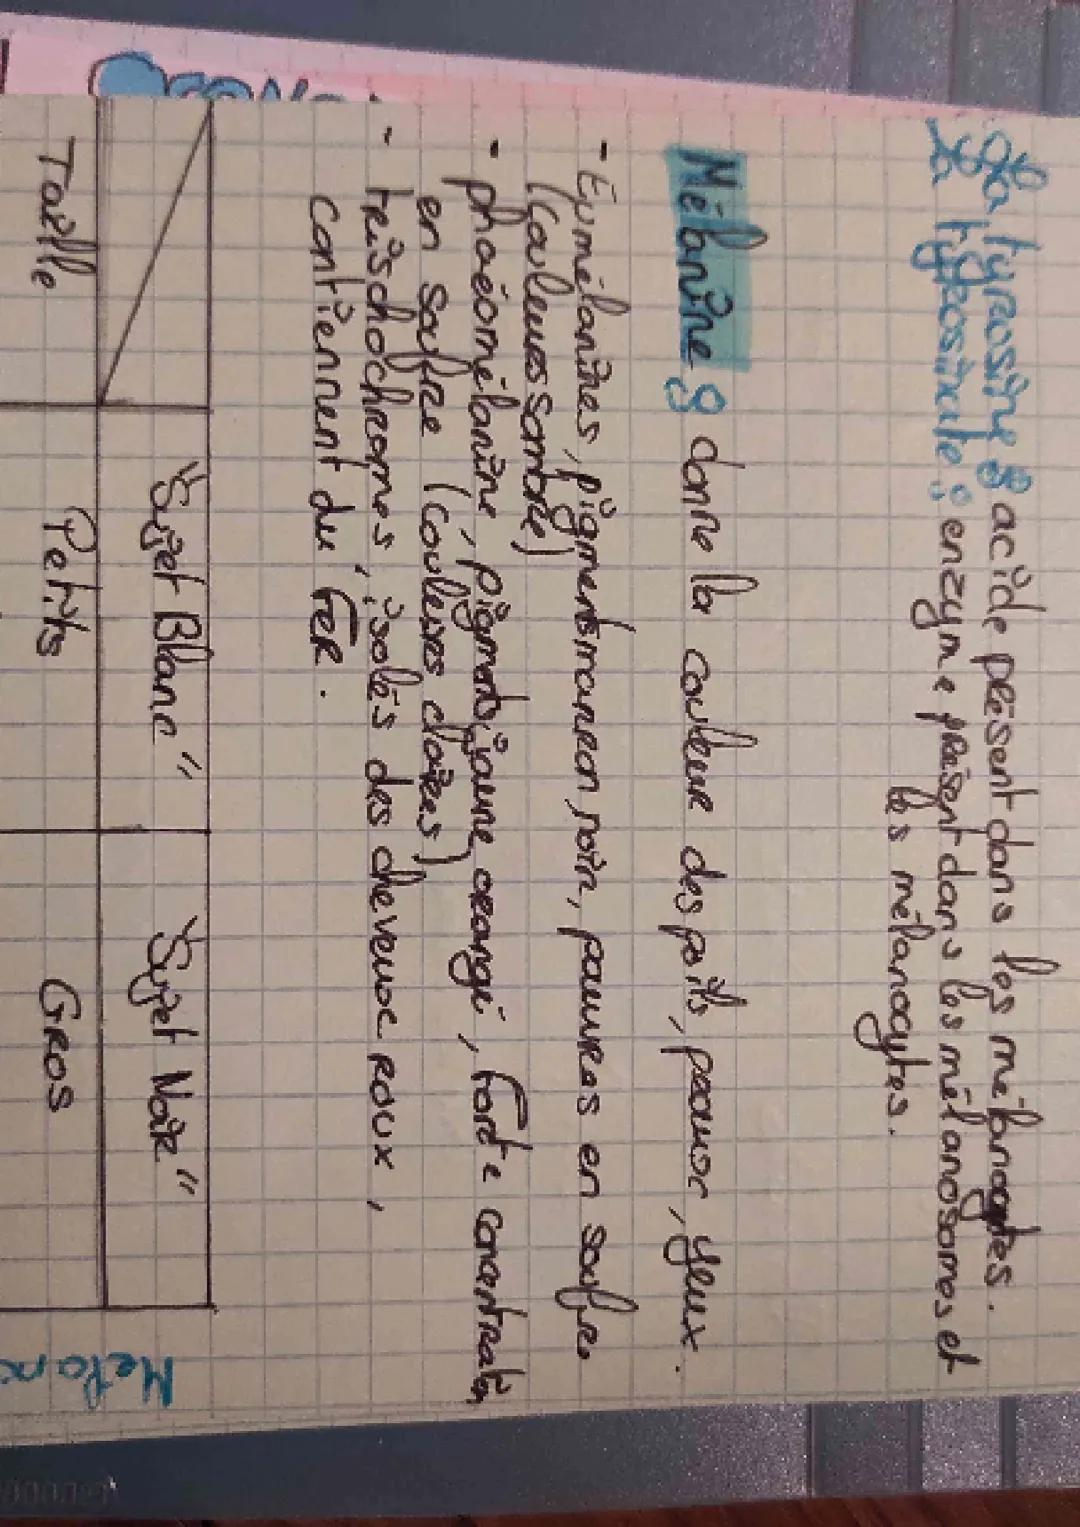 La tyrosine : acide présent dans les mélanocytes.
La tyrosinase : enzyme présent dans les mélanosomes et
les mélanocytes.
Mélanine : donne la couleur des poils, peaux, yeux.
- Eumélanines, pigments marron, noir, pauvres en soufre
(couleurs sombre)
- phaéomélanine, pigments jaune, orangé, forte concentration
en soufre (couleurs claires)
- trischochromes, isolés des cheveux roux,
contiennent du fer.
"Sujet Blanc" "Sujet Noir"
Taille Petits Gros